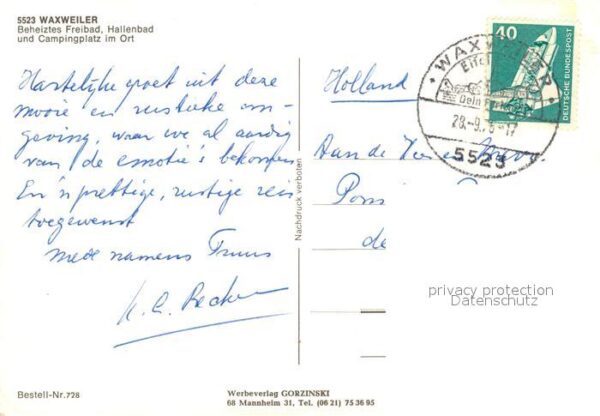 5523 WAXWEILER
Beheiztes Freibad, Hallenbad
und Campingplatz im Ort
Hartelijke groet uit deze
mooie en rustieke om-
geving, waar we al aardig
van de emotie's bekomen
En 'n prettige, rustige reis
toegewenst
Mede namens Truus
Holland
Aan de Heer en Mevr
de
Nachdruck verboten
40
DEUTSCHE BUNDESPOST
WAXWEILER
Eifel
5523
privacy protection
Datenschutz
Bestell-Nr.728
Werbeverlag GORZINSKI
68 Mannheim 31, Tel. (06 21) 75 36 95